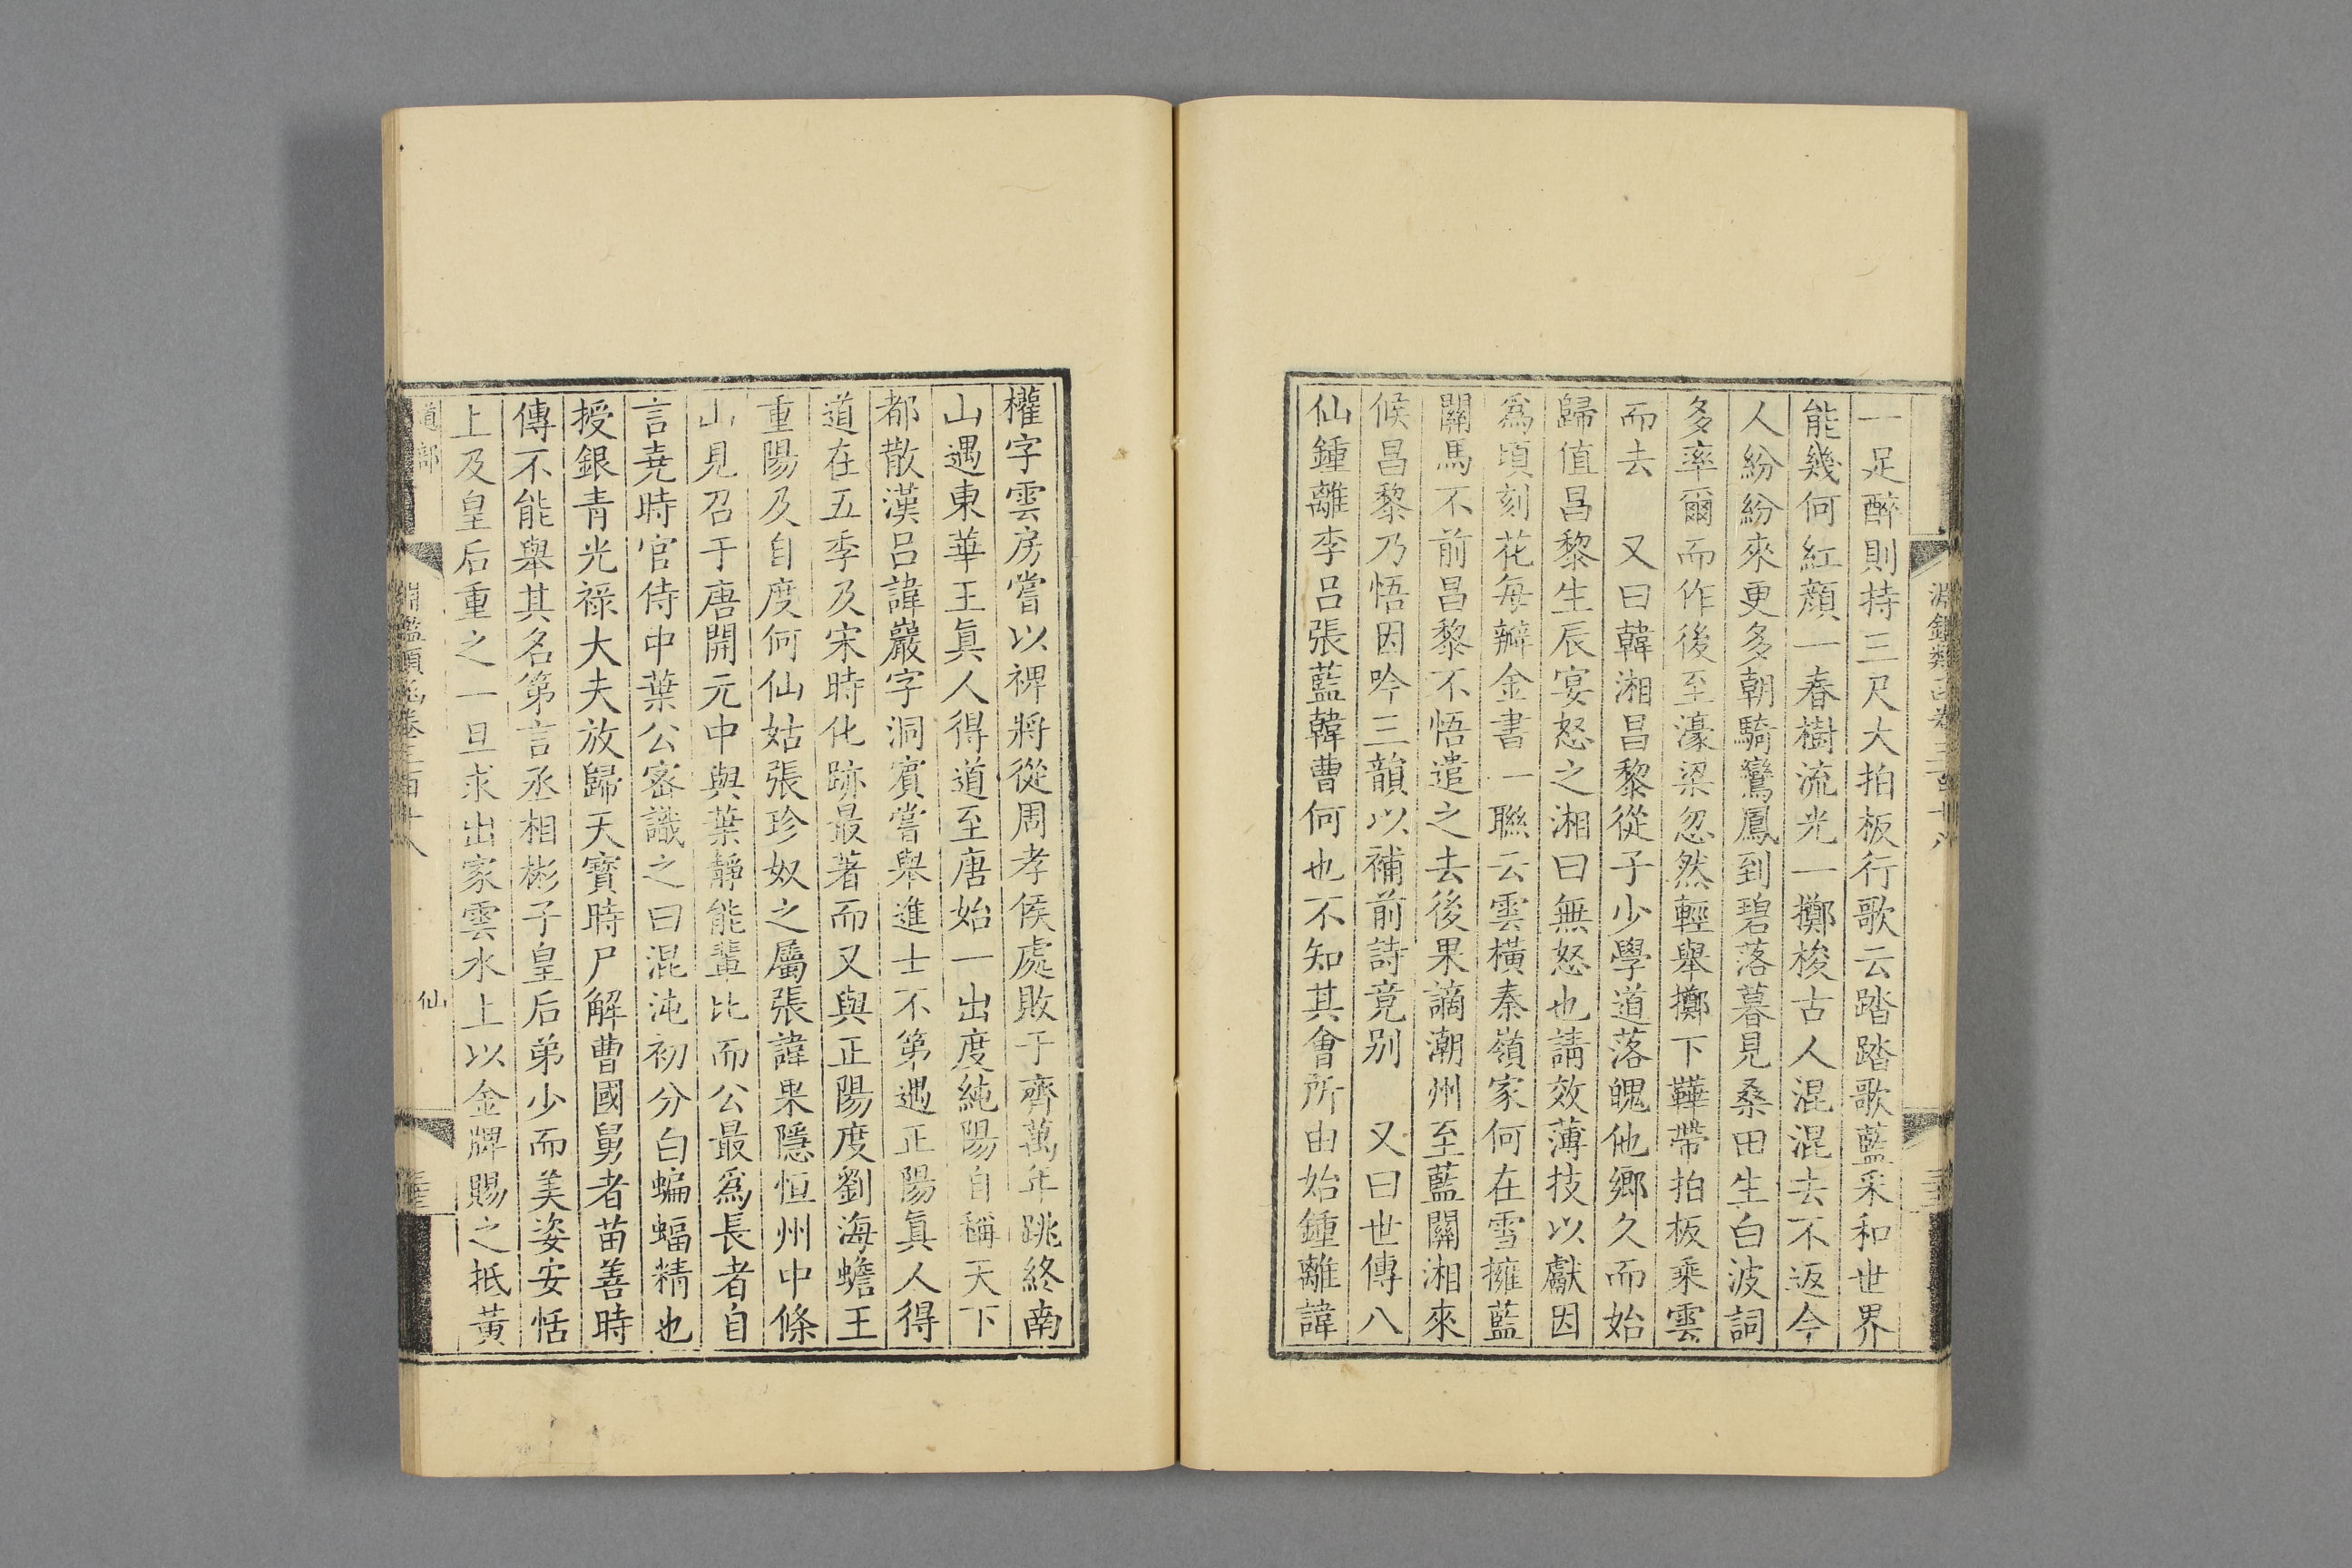 一足醉則持三尺大拍板行歌云踏踏歌藍采和世界
能幾何紅顔一春樹流光一擲梭古人混混去不返今
人紛紛來更多朝騎鸞鳳到碧落暮見桑田生白波詞
多率爾而作後至濠梁忽然輕舉擲下鞾帶拍板乘雲
而去　又曰韓湘昌黎從子少學道落魄他鄉久而始
歸值昌黎生辰宴怒之湘曰無怒也請效薄技以獻因
爲頃刻花每瓣金書一聯云雲橫秦嶺家何在雪擁藍
關馬不前昌黎不悟遣之去後果謫潮州至藍關湘來
候昌黎乃悟因吟三韻以補前詩竟别　又曰世傳八
仙鍾離李呂張藍韓曹何也不知其會所由始鍾離諱
權字雲房嘗以裨將從周孝侯處敗于齊萬年跳終南
山遇東華王眞人得道至唐始一出度純陽自稱天下
都散漢呂諱巖字洞賓嘗舉進士不第遇正陽眞人得
道在五季及宋時化跡最著而又與正陽度劉海蟾王
重陽及自度何仙姑張珍奴之屬張諱果隱恒州中條
山見召于唐開元中與葉靜能輩比而公最爲長者自
言堯時官侍中葉公密識之曰混沌初分白蝙蝠精也
授銀青光祿大夫放歸天寶時尸解曹國舅者苗善時
傳不能舉其名第言丞相彬子皇后弟少而美姿安恬
上及皇后重之一旦求出家雲水上以金牌賜之抵黃
道部
仙